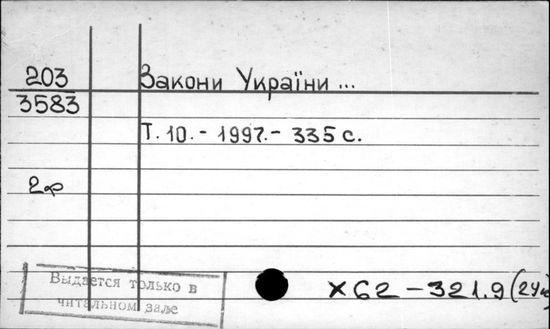 203
3583
Закони України ...
Т. 10. - 1997. - 335 с.
2ф
Выдается только в
читальном зале
Х62-321.9